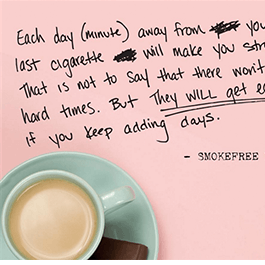 Each day (minute) away from yo
last cigarette will make you str
That is not to say that there won't
hard times. But They WILL get e
if you keep adding days.
- SMOKEFREE